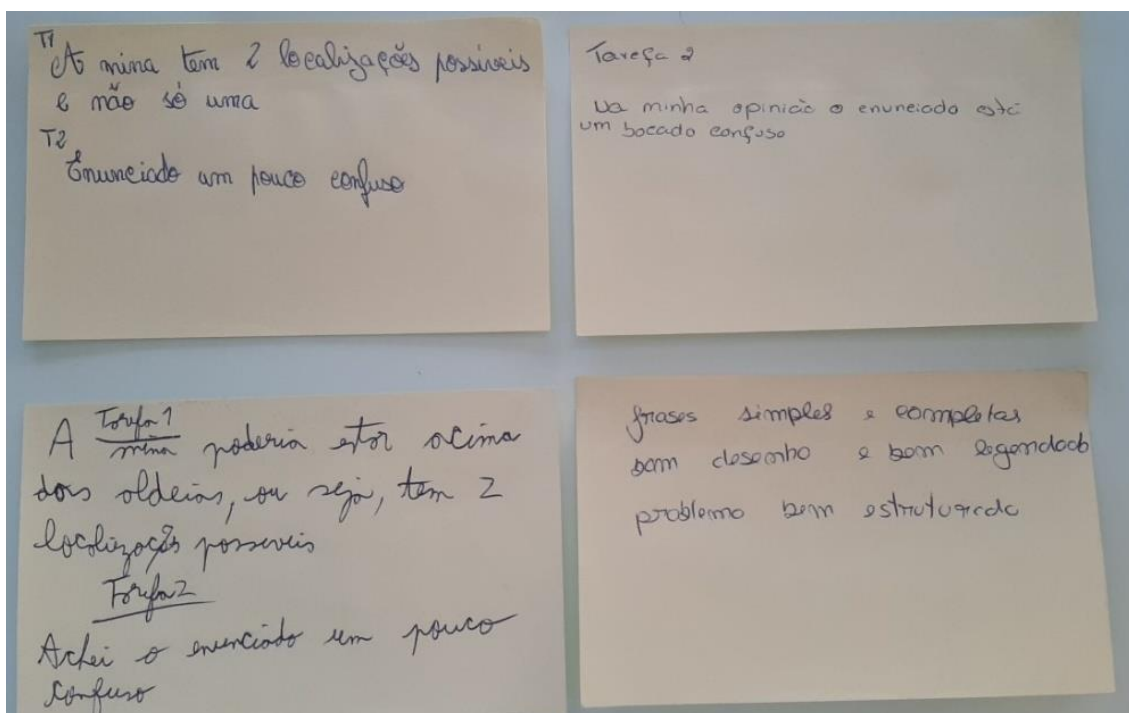 T1
A mina tem 2 localizações possíveis
e não só uma
T2
Enunciado um pouco confuso
Tarefa 2
Na minha opinião o enunciado está
um bocado confuso
Tarefa 1
A mina poderia estar acima
das aldeias, ou seja, tem 2
localizações possiveis
Tarefa 2
Achei o enunciado um pouco
confuso
frases simples e completas
bom desenho e bem legendado
problema bem estruturado